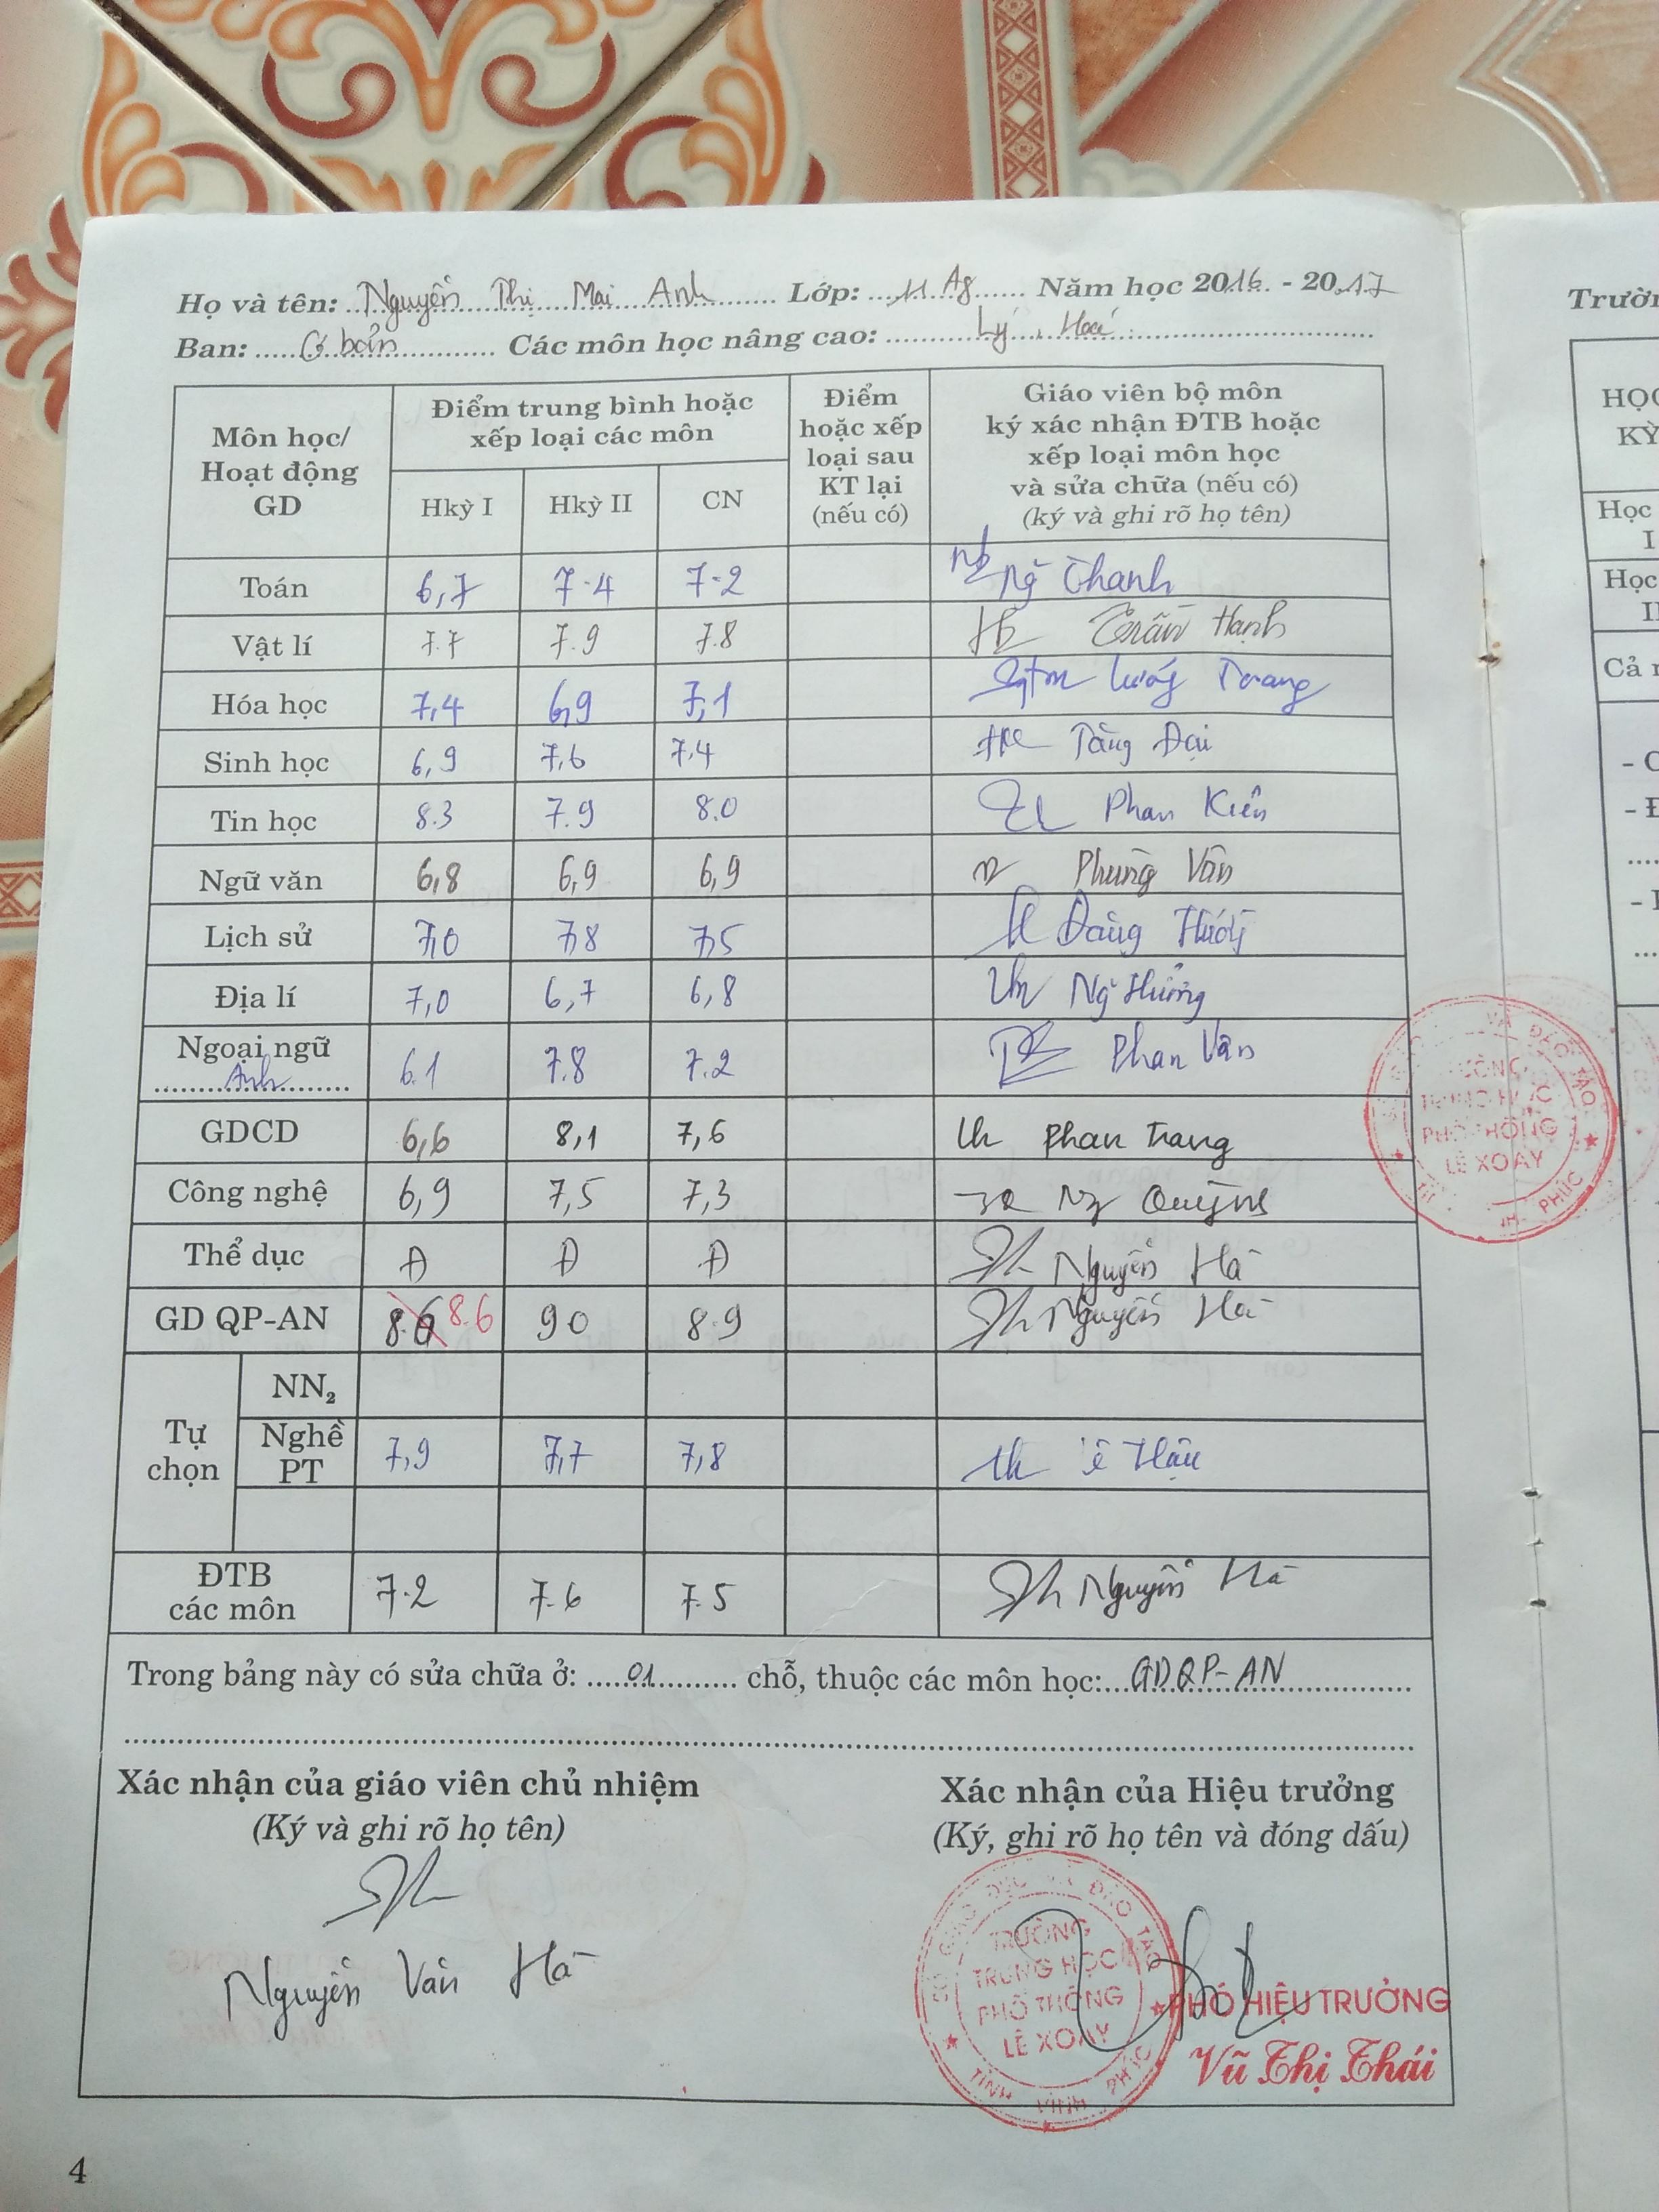 Họ và tên: Nguyễn Thị Mai Anh Lớp: 11 A8 Năm học 2016 - 2017
Ban: Cơ bản Các môn học nâng cao: Lý, Hoá
Môn học/ Hoạt động GD
Điểm trung bình hoặc xếp loại các môn
Hkỳ I Hkỳ II CN
Điểm hoặc xếp loại sau KT lại (nếu có)
Giáo viên bộ môn ký xác nhận ĐTB hoặc xếp loại môn học và sửa chữa (nếu có) (ký và ghi rõ họ tên)
Toán 6,7 7.4 7.2 Ng Thanh
Vật lí 7.7 7.9 7.8 Trần Hạnh
Hóa học 7,4 6,9 7,1 Trang
Sinh học 6,9 7,6 7,4 Tăng Đại
Tin học 8.3 7.9 8.0 Phan Kiên
Ngữ văn 6,8 6,9 6,9 Phùng Vân
Lịch sử 7,0 7,8 7,5
Địa lí 7,0 6,7 6,8 Ng Hưởng
Ngoại ngữ
Anh 6.1 7.8 7.2 Phan Vân
GDCD 6,6 8,1 7,6 Phan Trang
Công nghệ 6,9 7,5 7,3 Ng Quỳnh
Thể dục Đ Đ Đ Nguyễn Hà
GD QP-AN 8.6 9.0 8.9 Nguyễn Hà
Tự chọn
NN2
Nghề PT 7,9 7,7 7,8 Lê Hậu
ĐTB các môn 7.2 7.6 7.5 Nguyễn Hà
Trong bảng này có sửa chữa ở: 01 chỗ, thuộc các môn học: GDQP-AN
Xác nhận của giáo viên chủ nhiệm
(Ký và ghi rõ họ tên)
Nguyễn Văn Hà
Xác nhận của Hiệu trưởng
(Ký, ghi rõ họ tên và đóng dấu)
SỞ GIÁO DỤC VÀ ĐÀO TẠO
TRƯỜNG
TRUNG HỌC
PHỔ THÔNG
LÊ XOAY
TỈNH VĨNH PHÚC
PHÓ HIỆU TRƯỞNG
Vũ Thị Thái
4
VÀ ĐÀO TẠO
TRUNG HỌC
PHỔ THÔNG
LÊ XOAY
PHÚC
HỌC
KỲ
Học
I
Học
II
Cả